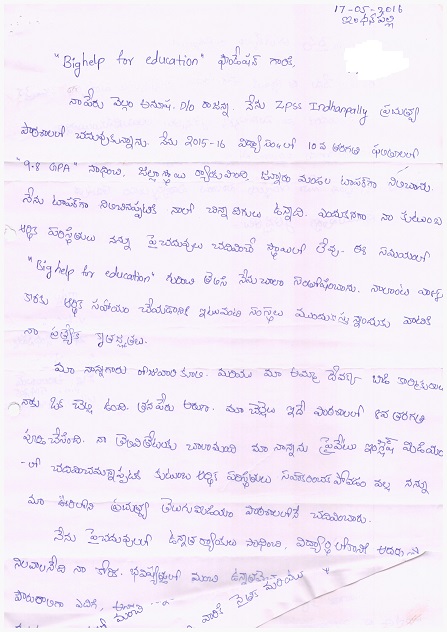 17-05-2016
ఇంధన్‌పల్లి
"Bighelp for education" ఫౌండేషన్ గారికి,
నా పేరు వెల్లం అనూష. D/o రాజన్న. నేను ZPSS Indhanpally ప్రభుత్వ
పాఠశాలలో చదువుకున్నాను. నేను 2015-16 విద్యా సం॥లో 10వ తరగతి ఫలితాలలో
"9.8 GPA" సాధించి, జిల్లా స్థాయి ర్యాంకు పొంది, జన్నారం మండల టాపర్‌గా నిలిచాను.
నేను టాపర్‌గా నిలిచినప్పటికీ నాలో చిన్న దిగులు ఉన్నది. ఎందుకనగా నా కుటుంబ
ఆర్థిక పరిస్థితులు నన్ను పై చదువులు చదివించే స్థాయిలో లేవు. ఈ సమయంలో
"Big help for education" గురించి తెలిసి నేను చాలా సంతోషించాను. నాలాంటి
కొరకు ఆర్థిక సహాయం చేయడానికి ఇటువంటి సంస్థలు ముందుకు వస్తున్నందుకు వాటికి
నా ప్రత్యేక కృతజ్ఞతలు.
మా నాన్నగారు రోజువారి కూలి. మరియు మా అమ్మ దేవక్క బీడి కార్మికురాలు
నాకు ఒక చెల్లి ఉంది. తన పేరు అరుణ. మా చెల్లెలు ఇదే పాఠశాలలో 8వ తరగతి
పూర్తి చేసింది. నా తెలివితేటలకు చాలామంది మా నాన్నను ప్రైవేటు ఇంగ్లీష్ మీడియం
-లో చదివించమన్నప్పటికీ కుటుంబ ఆర్థిక పరిస్థితులు సహకరించకపోవడం వల్ల నన్ను
మా ఊరిలోని ప్రభుత్వ తెలుగు మీడియం పాఠశాలలోనే చదివించారు.
నేను పై చదువులలో ఉన్నత ర్యాంకులు సాధించి, విద్యార్థి లోకానికే ఆదర్శంగా
నిలవాలనేది నా కోరిక. భవిష్యత్తులో మంచి
పౌరురాలిగా ఎదిగి,